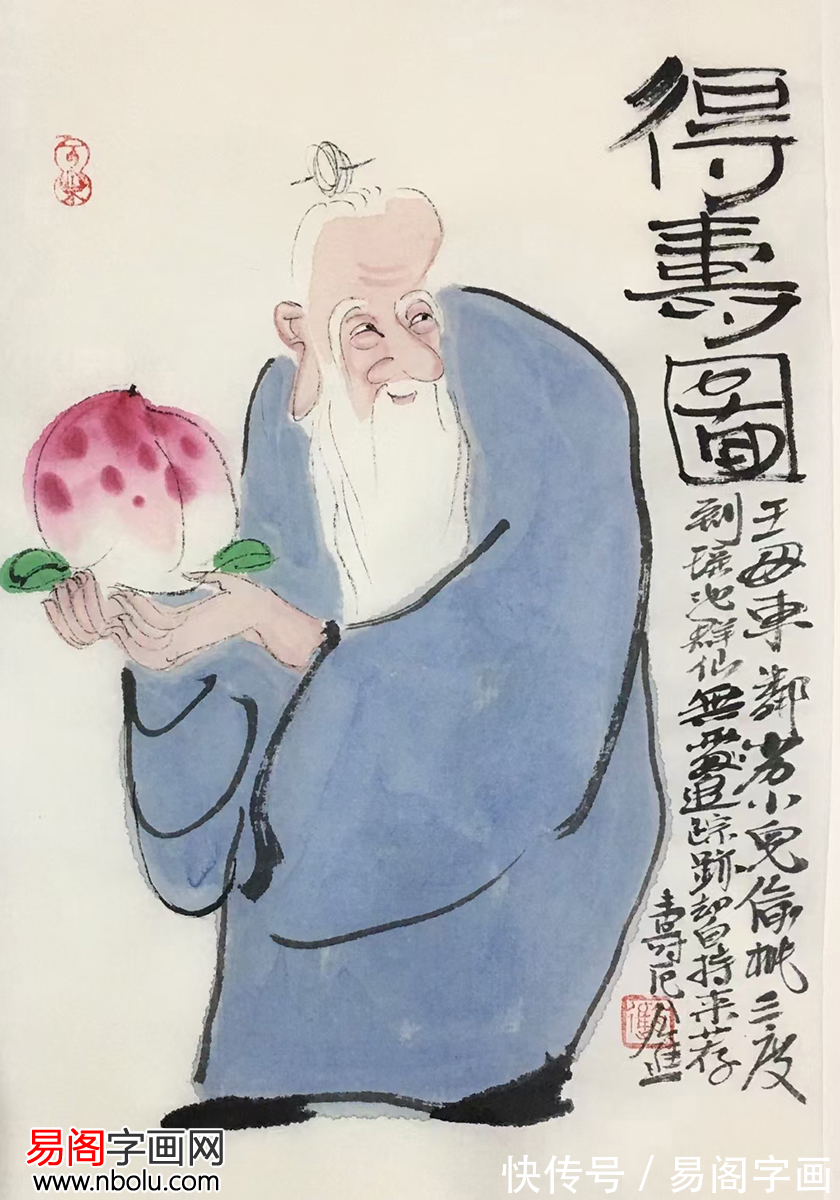 得壽圖
王母東鄰劣小兒偷桃三度
到瑶池群仙無處追踪跡却自持来荐
壽卮
易阁字画网
www.nbolu.com
快传号 / 易阁字画